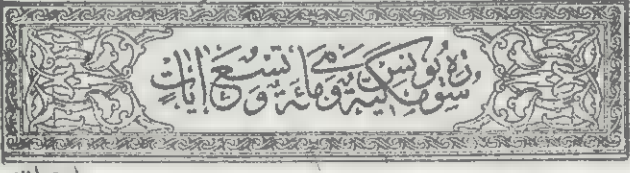 سورة يونس مكية وهي مائة وتسع ايات